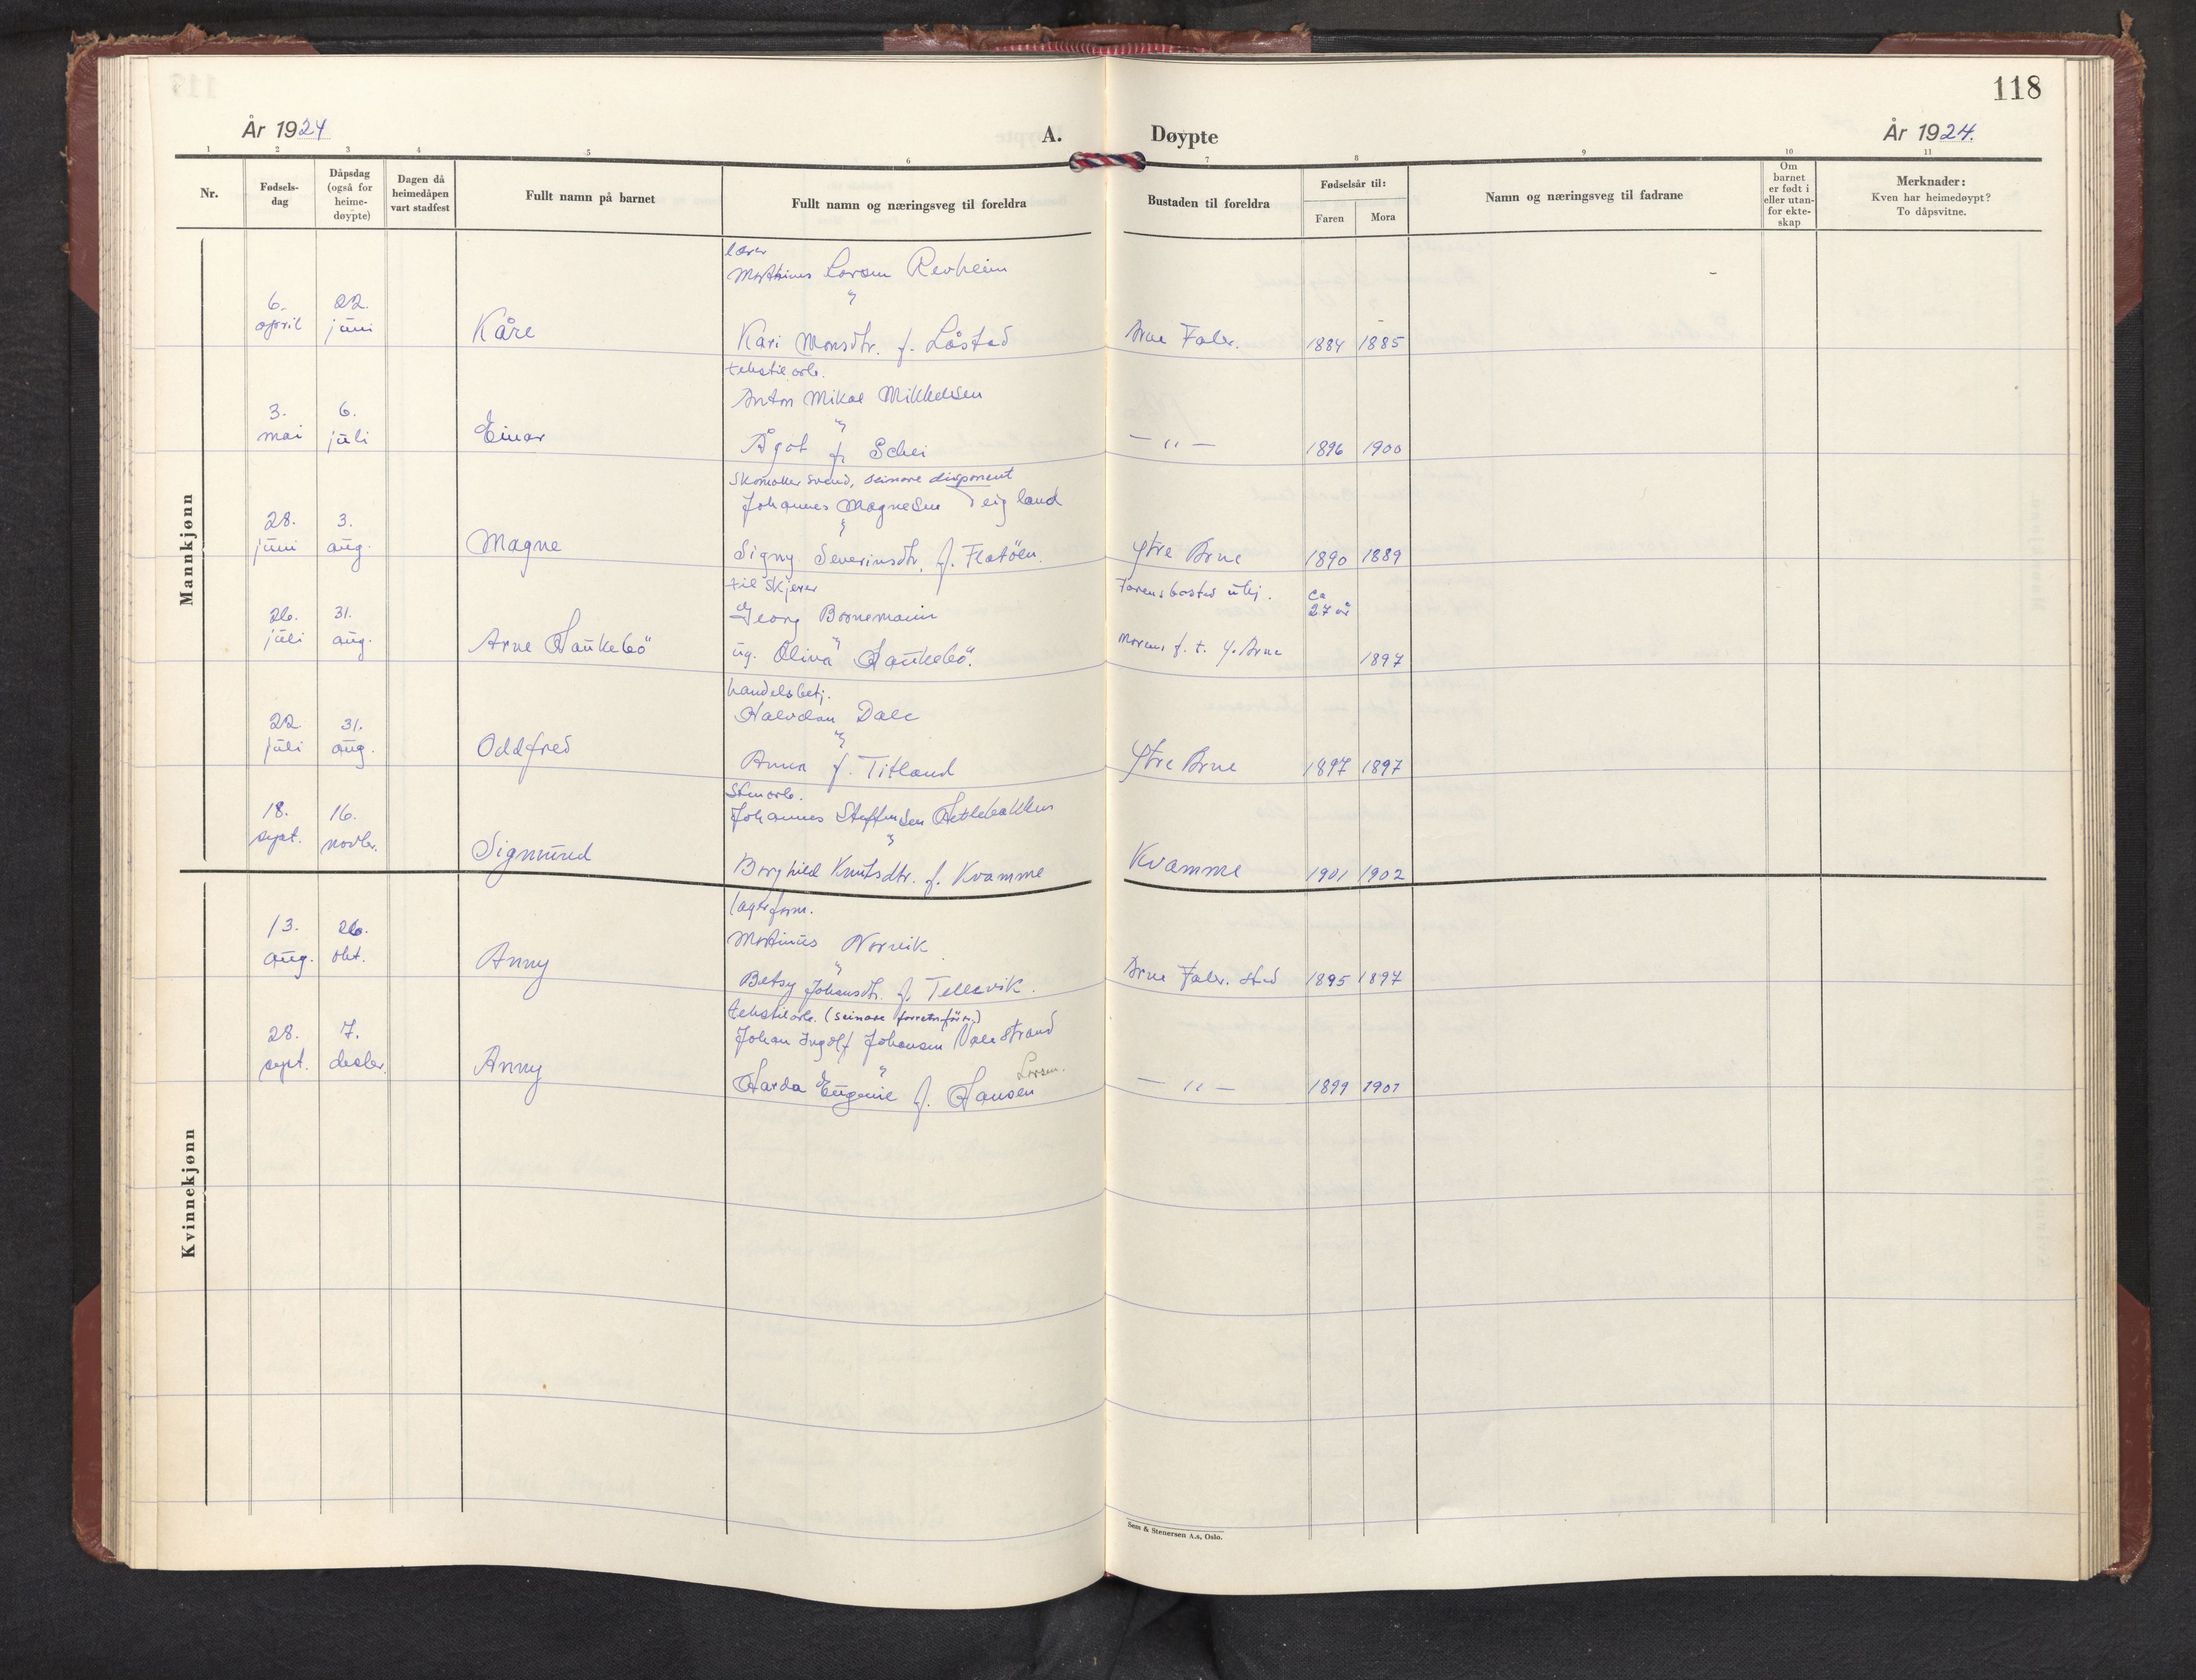 118
År 1924
A.
Døypte
År 1924.
1 2 3 4 5 6 7 8 9 10 11
Nr.
Fødsels-
dag
Dåpsdag
(også for
heime-
døypte)
Dagen då
heimedåpen
vart stadfest
Fullt namn på barnet
Fullt namn og næringsveg til foreldra
Bustaden til foreldra
Fødselsår til:
Faren Mora
Namn og næringsveg til fadrane
Om
barnet
er født i
eller utan-
for ekte-
skap
Merknader:
Kven har heimedøypt?
To dåpsvitne.
Mannkjønn
lærer
Marthinus Larsen Revheim
"
6. april 22. juni Kåre Kari Monsdtr. f. Låstad Arne Fabr. 1884 1885
tekstilarb.
Anton Mikal Mikkelsen
"
3. mai 6. juli Einar Ågot f. Schei — " — 1896 1900
skomaker svend, seinare disponent
Johannes Magnesen Teigland
"
28. juni 3. aug. Magne Signy Severinsdtr. f. Flatöen. Ytre Arne 1890 1889
tilskjerer
Georg Bornemann Farens bosted utkj. ca 27 år
"
26. juli 31. aug. Arne Haukebö ug. Oliva Haukebö. Morens f. t. Y. Arne 1897
handelsbetj.
Halvdan Dale
"
22 juli 31. aug. Oddfred Anna f. Titland Ytre Arne 1897 1897
Stenarb.
Johannes Steffensen Hettlebakken
"
18. sept. 16. novbr. Sigmund Borghild Knutsdtr. f. Kvamme Kvamme 1901 1902
Kvinnekjønn
lagerform.
Martinus Norvik
"
13. aug. 26. okt. Anny Betsy Johansdtr. f. Tellevik. Arne Fabr. sted 1895 1897
tekstilarb. (seinare forretn.før.)
Johan Ingolf Johansen Valestrand
" Larsen.
28. sept. 7. desbr. Anny Harda Eugenie f. Hansen — " — 1899 1901
Sem & Stenersen A.s, Oslo.